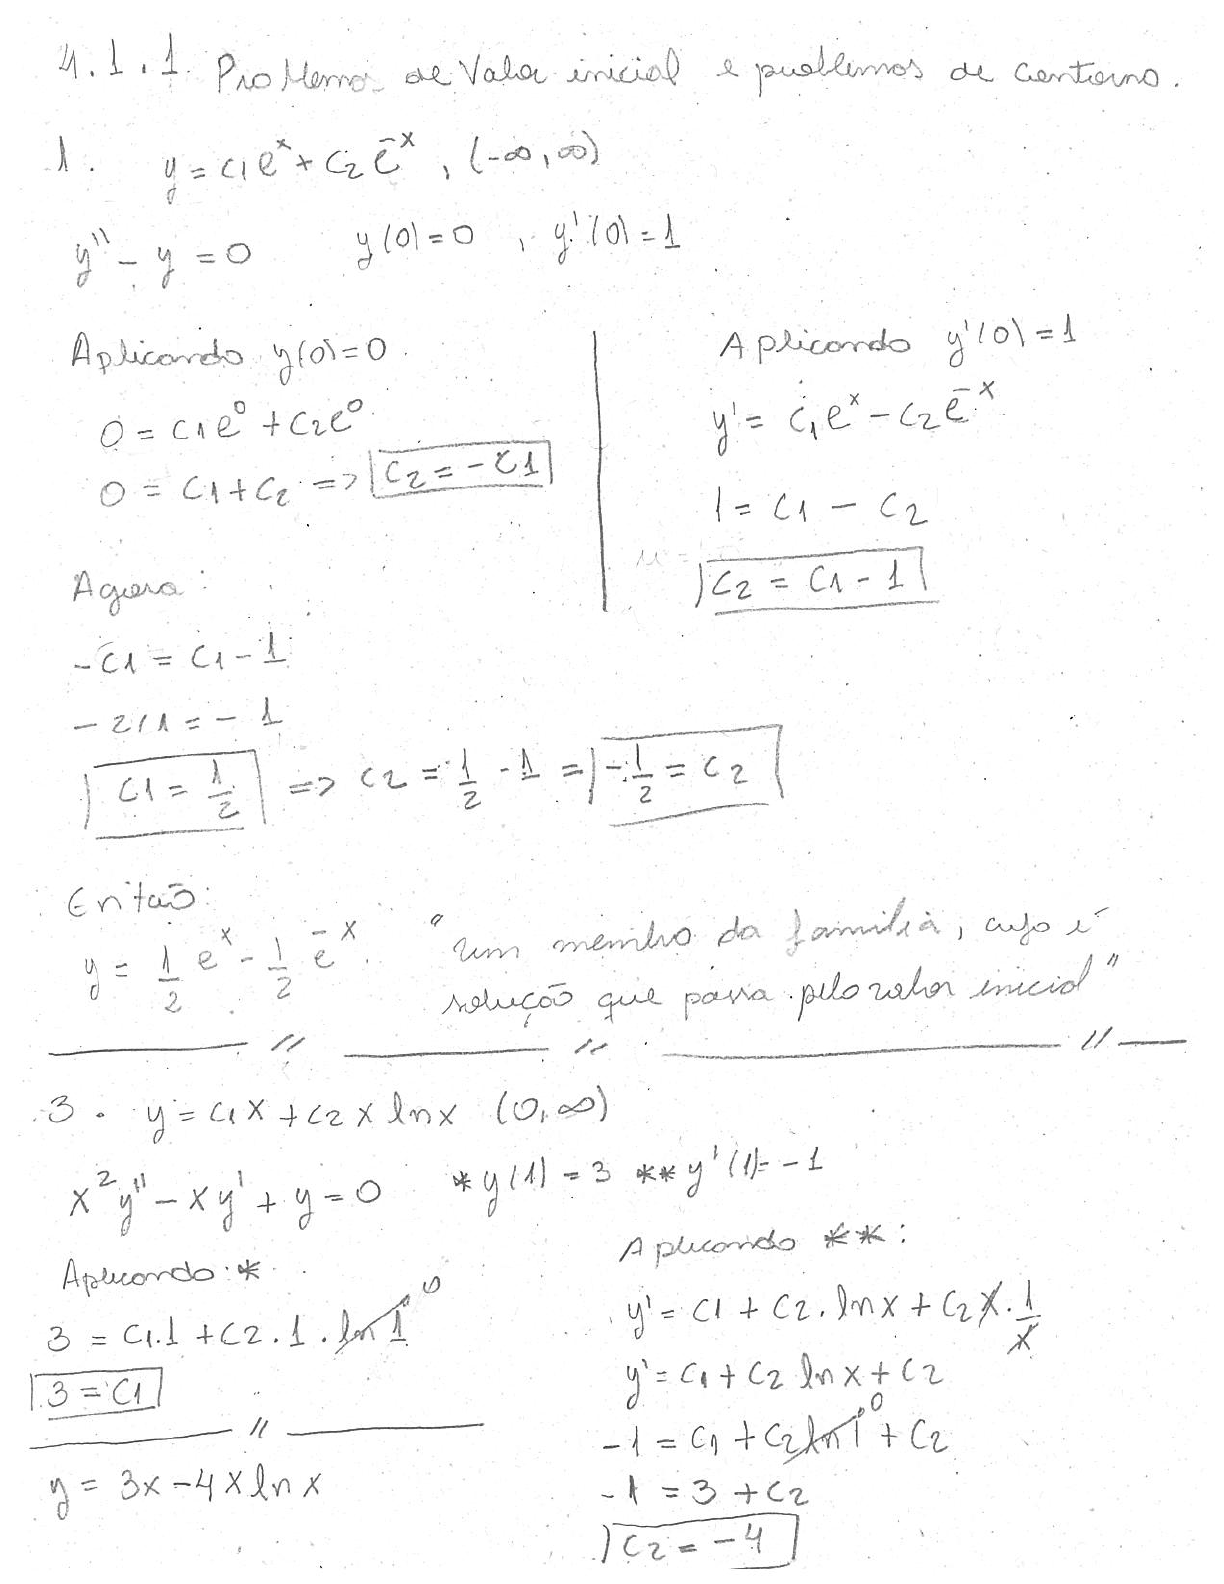 4.1.1. Problemas de Valor inicial e problemas de contorno.
1. y = c1e^x + c2e^-x , (-∞,∞)
y'' - y = 0 y(0)=0 , y'(0)=1
Aplicando y(0)=0
0 = c1e^0 + c2e^0
0 = c1 + c2 => c2 = -c1
Aplicando y'(0)=1
y' = c1e^x - c2e^-x
1 = c1 - c2
c2 = c1 - 1
Agora:
-c1 = c1 - 1
-2c1 = -1
c1 = 1/2 => c2 = 1/2 - 1 = -1/2 = c2
Então:
y = 1/2 e^x - 1/2 e^-x.
"um membro da família, cujo é
solução que passa pelo valor inicial"
3. y = c1x + c2x lnx (0,∞)
x²y'' - xy' + y = 0 *y(1) = 3 **y'(1) = -1
Aplicando: *
3 = c1.1 + c2.1.ln 1 0
3 = c1
y = 3x - 4x ln x
Aplicando **:
y' = c1 + c2.lnx + c2x.1/x
y' = c1 + c2 lnx + c2
-1 = c1 + c2 ln1 0 + c2
-1 = 3 + c2
c2 = -4